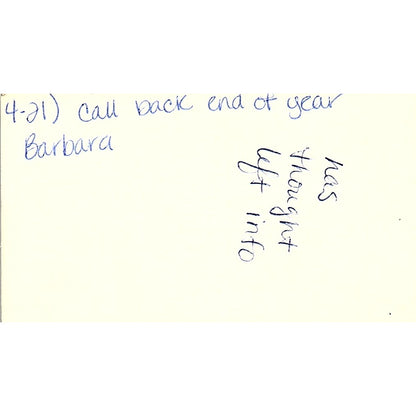 4-21) Call back end of year
Barbara
has
thought
left info